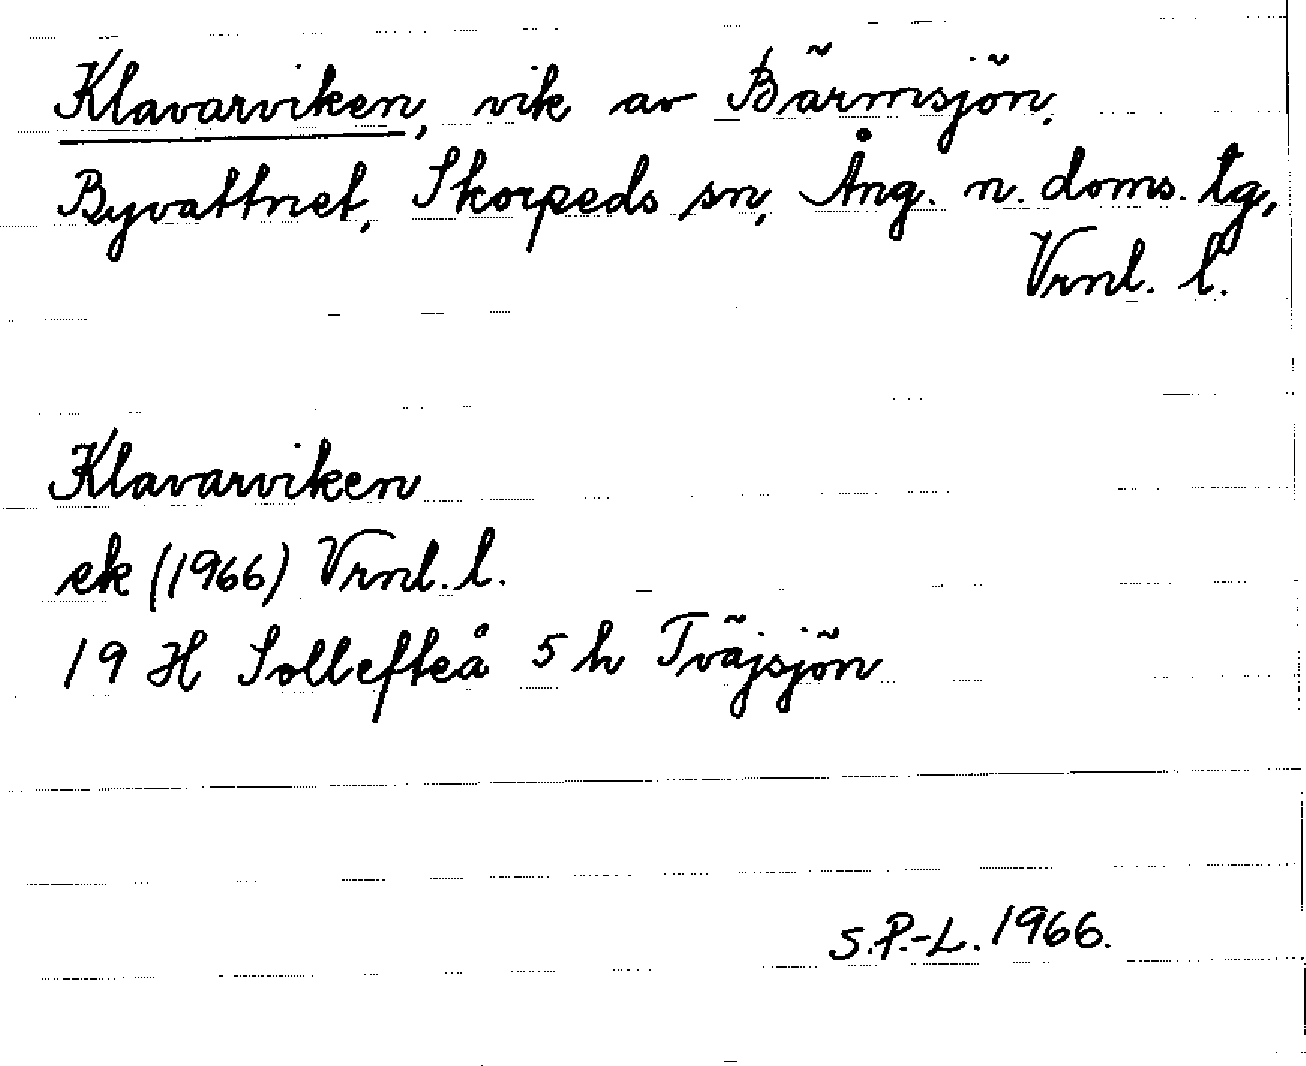 Klavarviken, vik av Bärmsjön,
Byvattnet, Skorpeds sn, Ång. n. doms. tg,
Vrnl. l.
Klavarviken
ek (1966) Vrnl. l.
19 H Sollefteå 5 h Tväjsjön
S.P.-L. 1966.